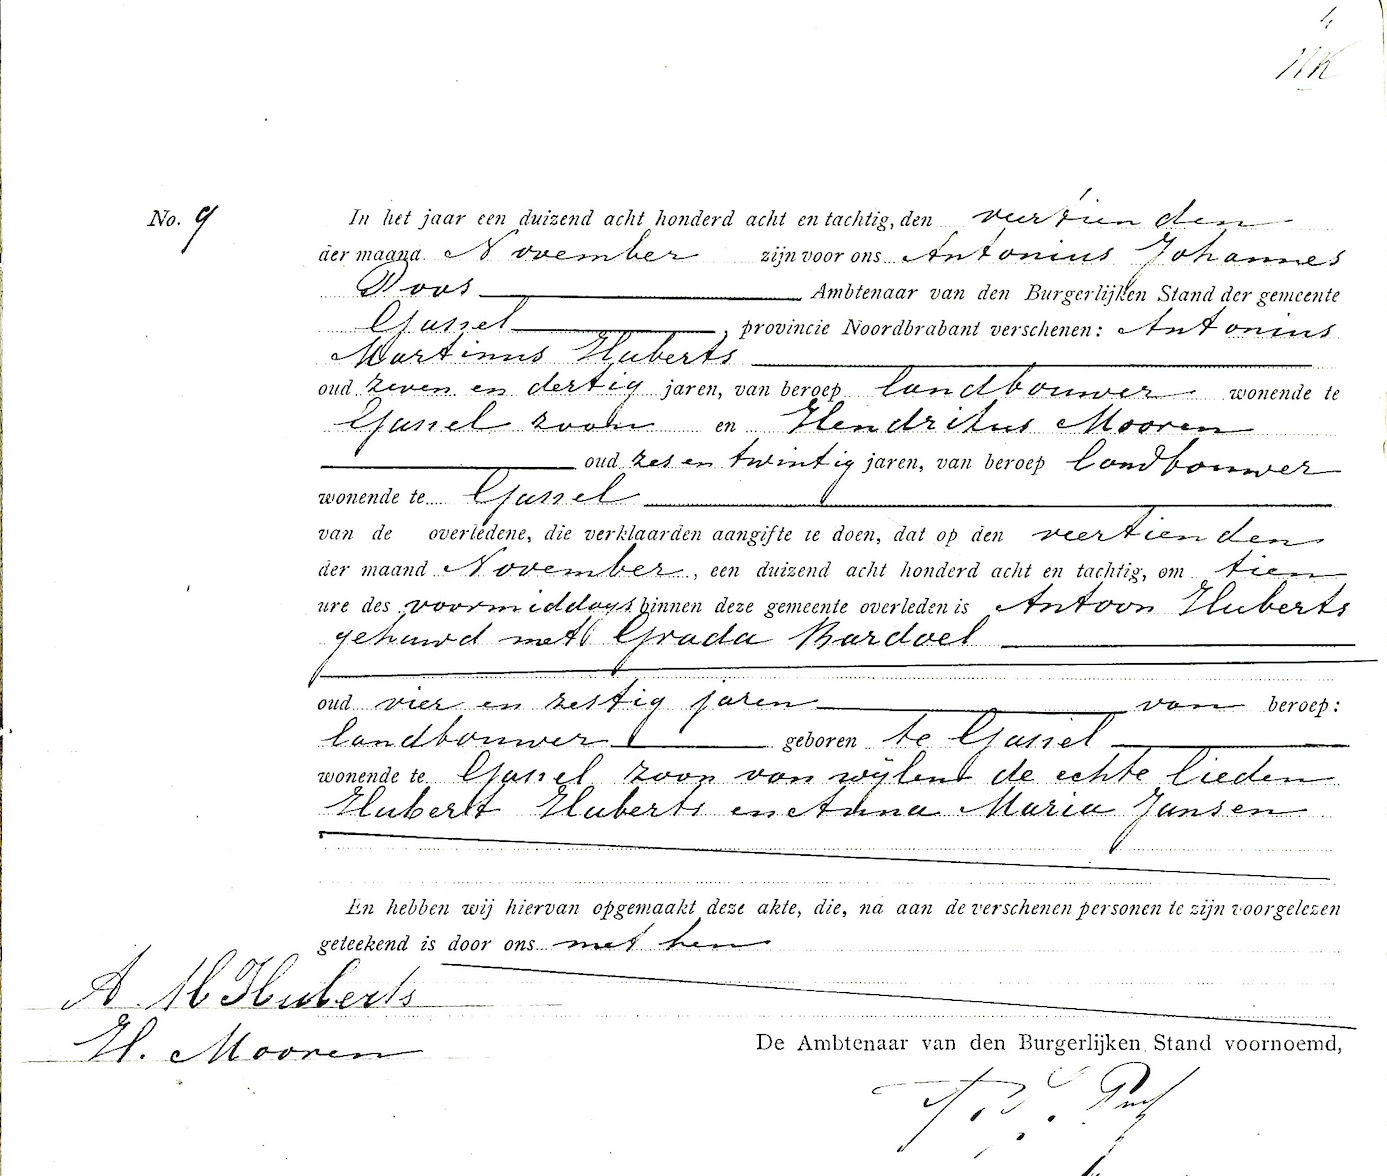 4
No. 9
In het jaar een duizend acht honderd acht en tachtig, den veertienden
der maand November zijn voor ons Antonius Johannes
Poos Ambtenaar van den Burgerlijken Stand der gemeente
Gassel, provincie Noordbrabant verschenen: Antonius
Martinus Huberts
oud zeven en dertig jaren, van beroep landbouwer wonende te
Gassel zoon en Hendrikus Mooren
oud zes en twintig jaren, van beroep landbouwer
wonende te Gassel
van de overledene, die verklaarden aangifte te doen, dat op den veertienden
der maand November, een duizend acht honderd acht en tachtig, om tien
ure des voormiddags binnen deze gemeente overleden is Antoon Huberts
gehuwd met Grada Bardoel
oud vier en zestig jaren van beroep:
landbouwer geboren te Gassel
wonende te Gassel zoon van wijlen de echte lieden
Hubert Huberts en Anna Maria Jansen
En hebben wij hiervan opgemaakt deze akte, die, na aan de verschenen personen te zijn voorgelezen
geteekend is door ons met hen
A. M Huberts
H. Mooren
De Ambtenaar van den Burgerlijken Stand voornoemd,